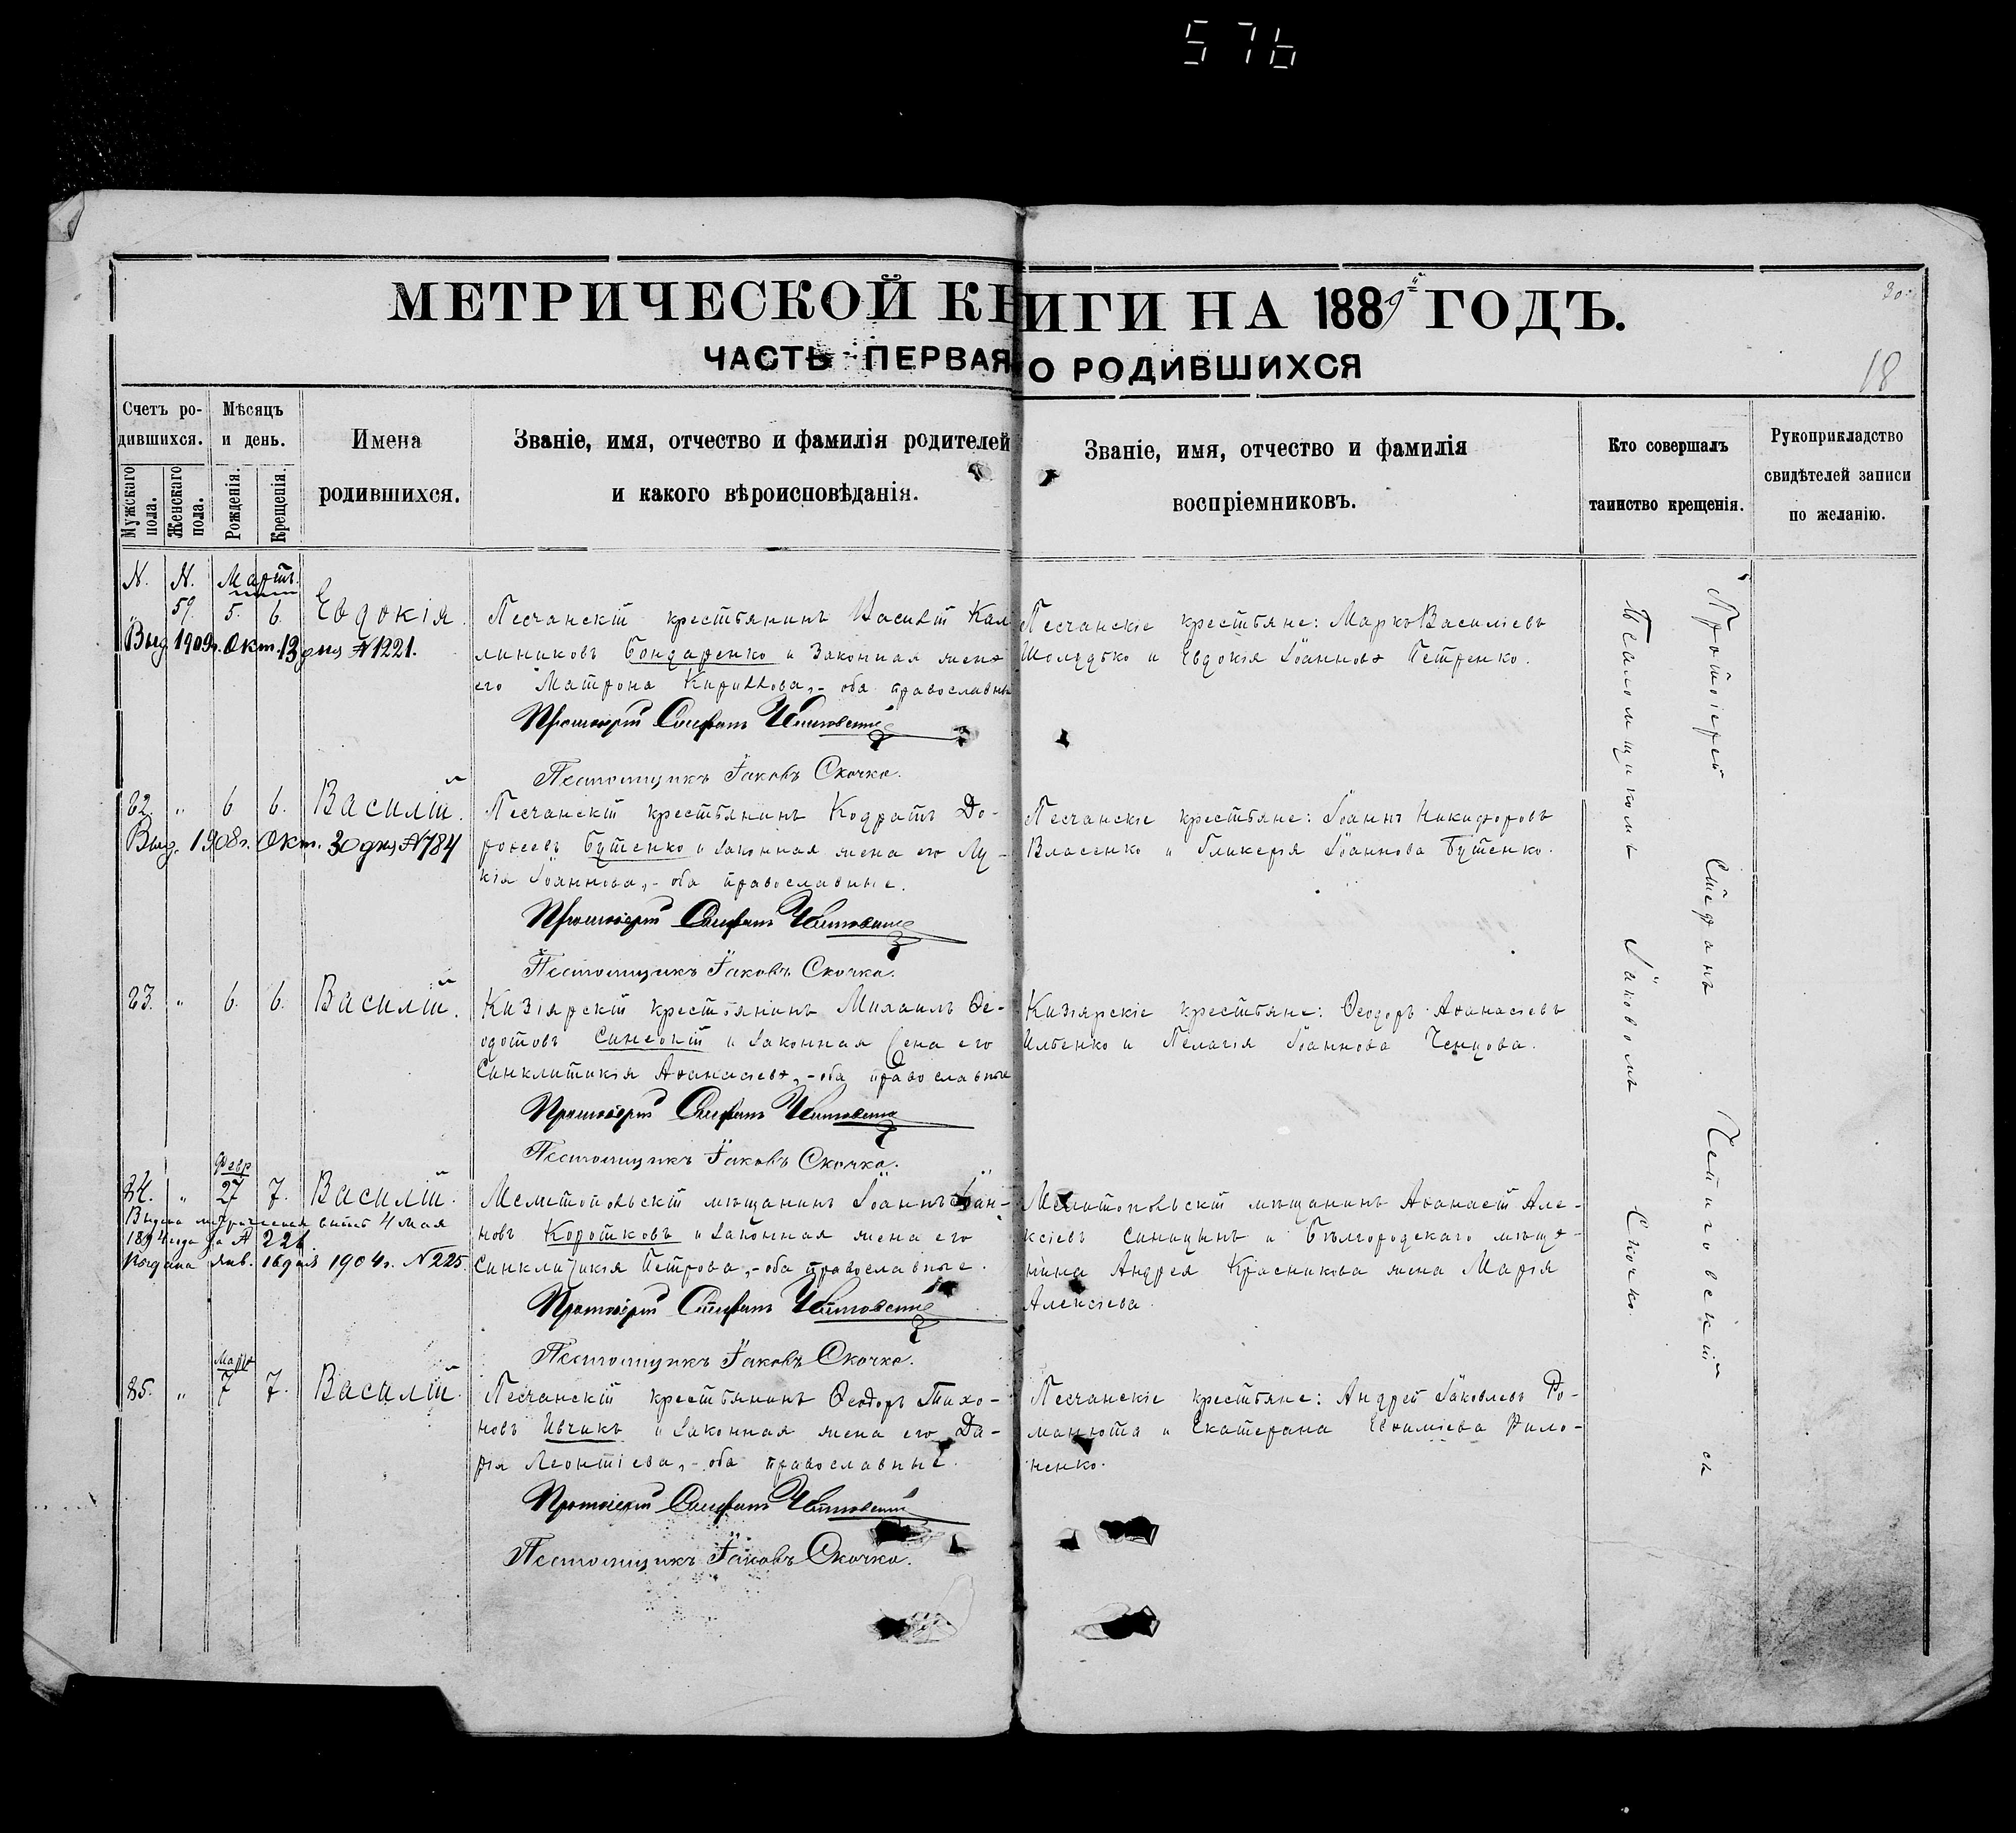 576
МЕТРИЧЕСКОЙ КНИГИ НА 1889й ГОДЪ.
30.
ЧАСТЬ ПЕРВАЯ О РОДИВШИХСЯ
18
Счетъ ро-
дившихся.
Мужскаго пола.
Женскаго пола.
Мѣсяцъ
и день.
Рожденія.
Крещенія.
Имена
родившихся.
Званіе, имя, отчество и фамилія родителей
и какого вѣроисповѣданія.
Званіе, имя, отчество и фамилія
воспріемниковъ.
Кто совершалъ
таинство крещенія.
Рукоприкладство
свидѣтелей записи
по желанію.
N. N. Мартъ.
59. 5. 6. Евдокія.
Выд. 1909г. Окт. 13 дня №1221.
Песчанскій крестьянинъ Василій Кал
линиковъ Бондаренко и законная жена
его Матрона Кириллова,- оба православны
Протоіерей Стефанъ Чепиговскій
Псаломщикъ Іаковъ Скочко.
Песчанскіе крестьяне: Марко Василіевъ
и Евдокія Іоаннова Петренко.
82. " 6 6. Василій.
Выд. 1908г. Окт. 30 дня №784
Песчанскій крестьянинъ Кодратъ До-
роѳеевъ Бутенко и законная жена его Лу-
кія Іоаннова,- оба православные.
Протоіерей Стефанъ Чепиговскій
Псаломщикъ Іаковъ Скочко.
Песчанскіе крестьяне: Іоаннъ Никифоровъ
Власенко и Гликерія Іоаннова Бутенко.
83. " 6. 6. Василій.
Кизіярскій крестьянинъ Михаилъ Ѳе-
одотовъ Синеокій и законная жена его
Синклитикія Аѳанасіева,- оба православные
Протоіерей Стефанъ Чепиговскій
Псаломщикъ Іаковъ Скочко.
Кизіярскіе крестьяне: Ѳеодоръ Аѳанасіевъ
Ильенко и Пелагія Іоаннова Ченцова.
Февр
84. " 27 7. Василій.
4 мая
189 года за № 221
Выдана Янв. 16 дня 1904г. №225.
Мелитопольскій мѣщанинъ Іоаннъ Іоан-
новъ Коротковъ и законная жена его
Синклитикія Петрова,- оба православные.
Протоіерей Стефанъ Чепиговскій
Псаломщикъ Іаковъ Скочко.
Мелитопольскій мѣщанинъ Аѳанасій Але-
ксіевъ Синицынъ и Бѣлгородскаго мѣща-
нина Андрея Красникова жена Марія
Алексіева.
Марта
85. " 7 7. Василій.
Песчанскій крестьянинъ Ѳеодоръ Тихо-
новъ Ивчикъ и законная жена его Да-
рія Леонтіева,- оба православные.
Протоіерей Стефанъ Чепиговскій
Псаломщикъ Іаковъ Скочко.
Песчанскіе крестьяне: Андрей Іаковлевъ Ро-
манюта и Екатерина Евѳиміева Фило-
ненко.
Протоіерей Стефанъ Чепиговскій съ
Псаломщикомъ Іаковомъ Скочко.